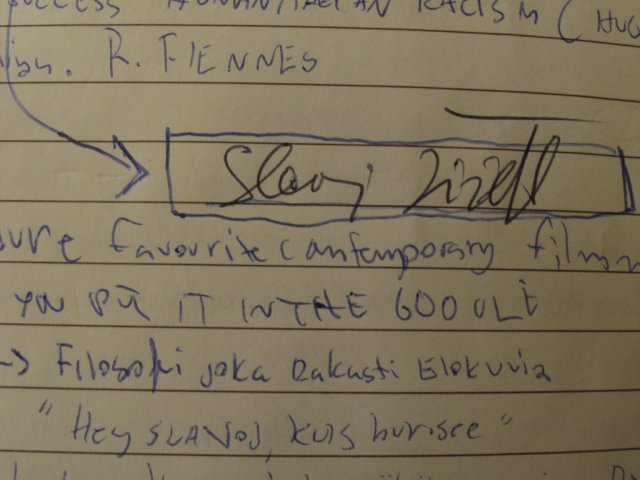 SUCCESS HUMANITARIAN RACISM (HUG
R. FIENNES
Slavoj Žižek
favourite contemporary film
YOU PUT IT IN THE GOOGLE
-> Filosofi joka Rakasti Elokuvia
"HEY SLAVOJ, KUIS hurisee"